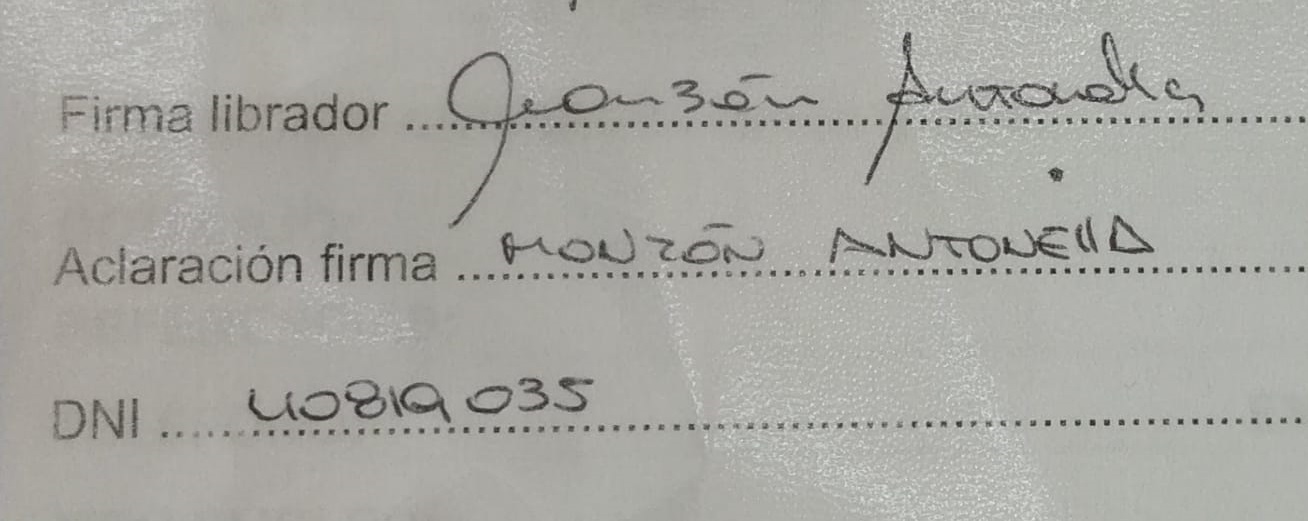 Firma librador Monzón Antonella
Aclaración firma MONZÓN ANTONELLA
DNI 40819035